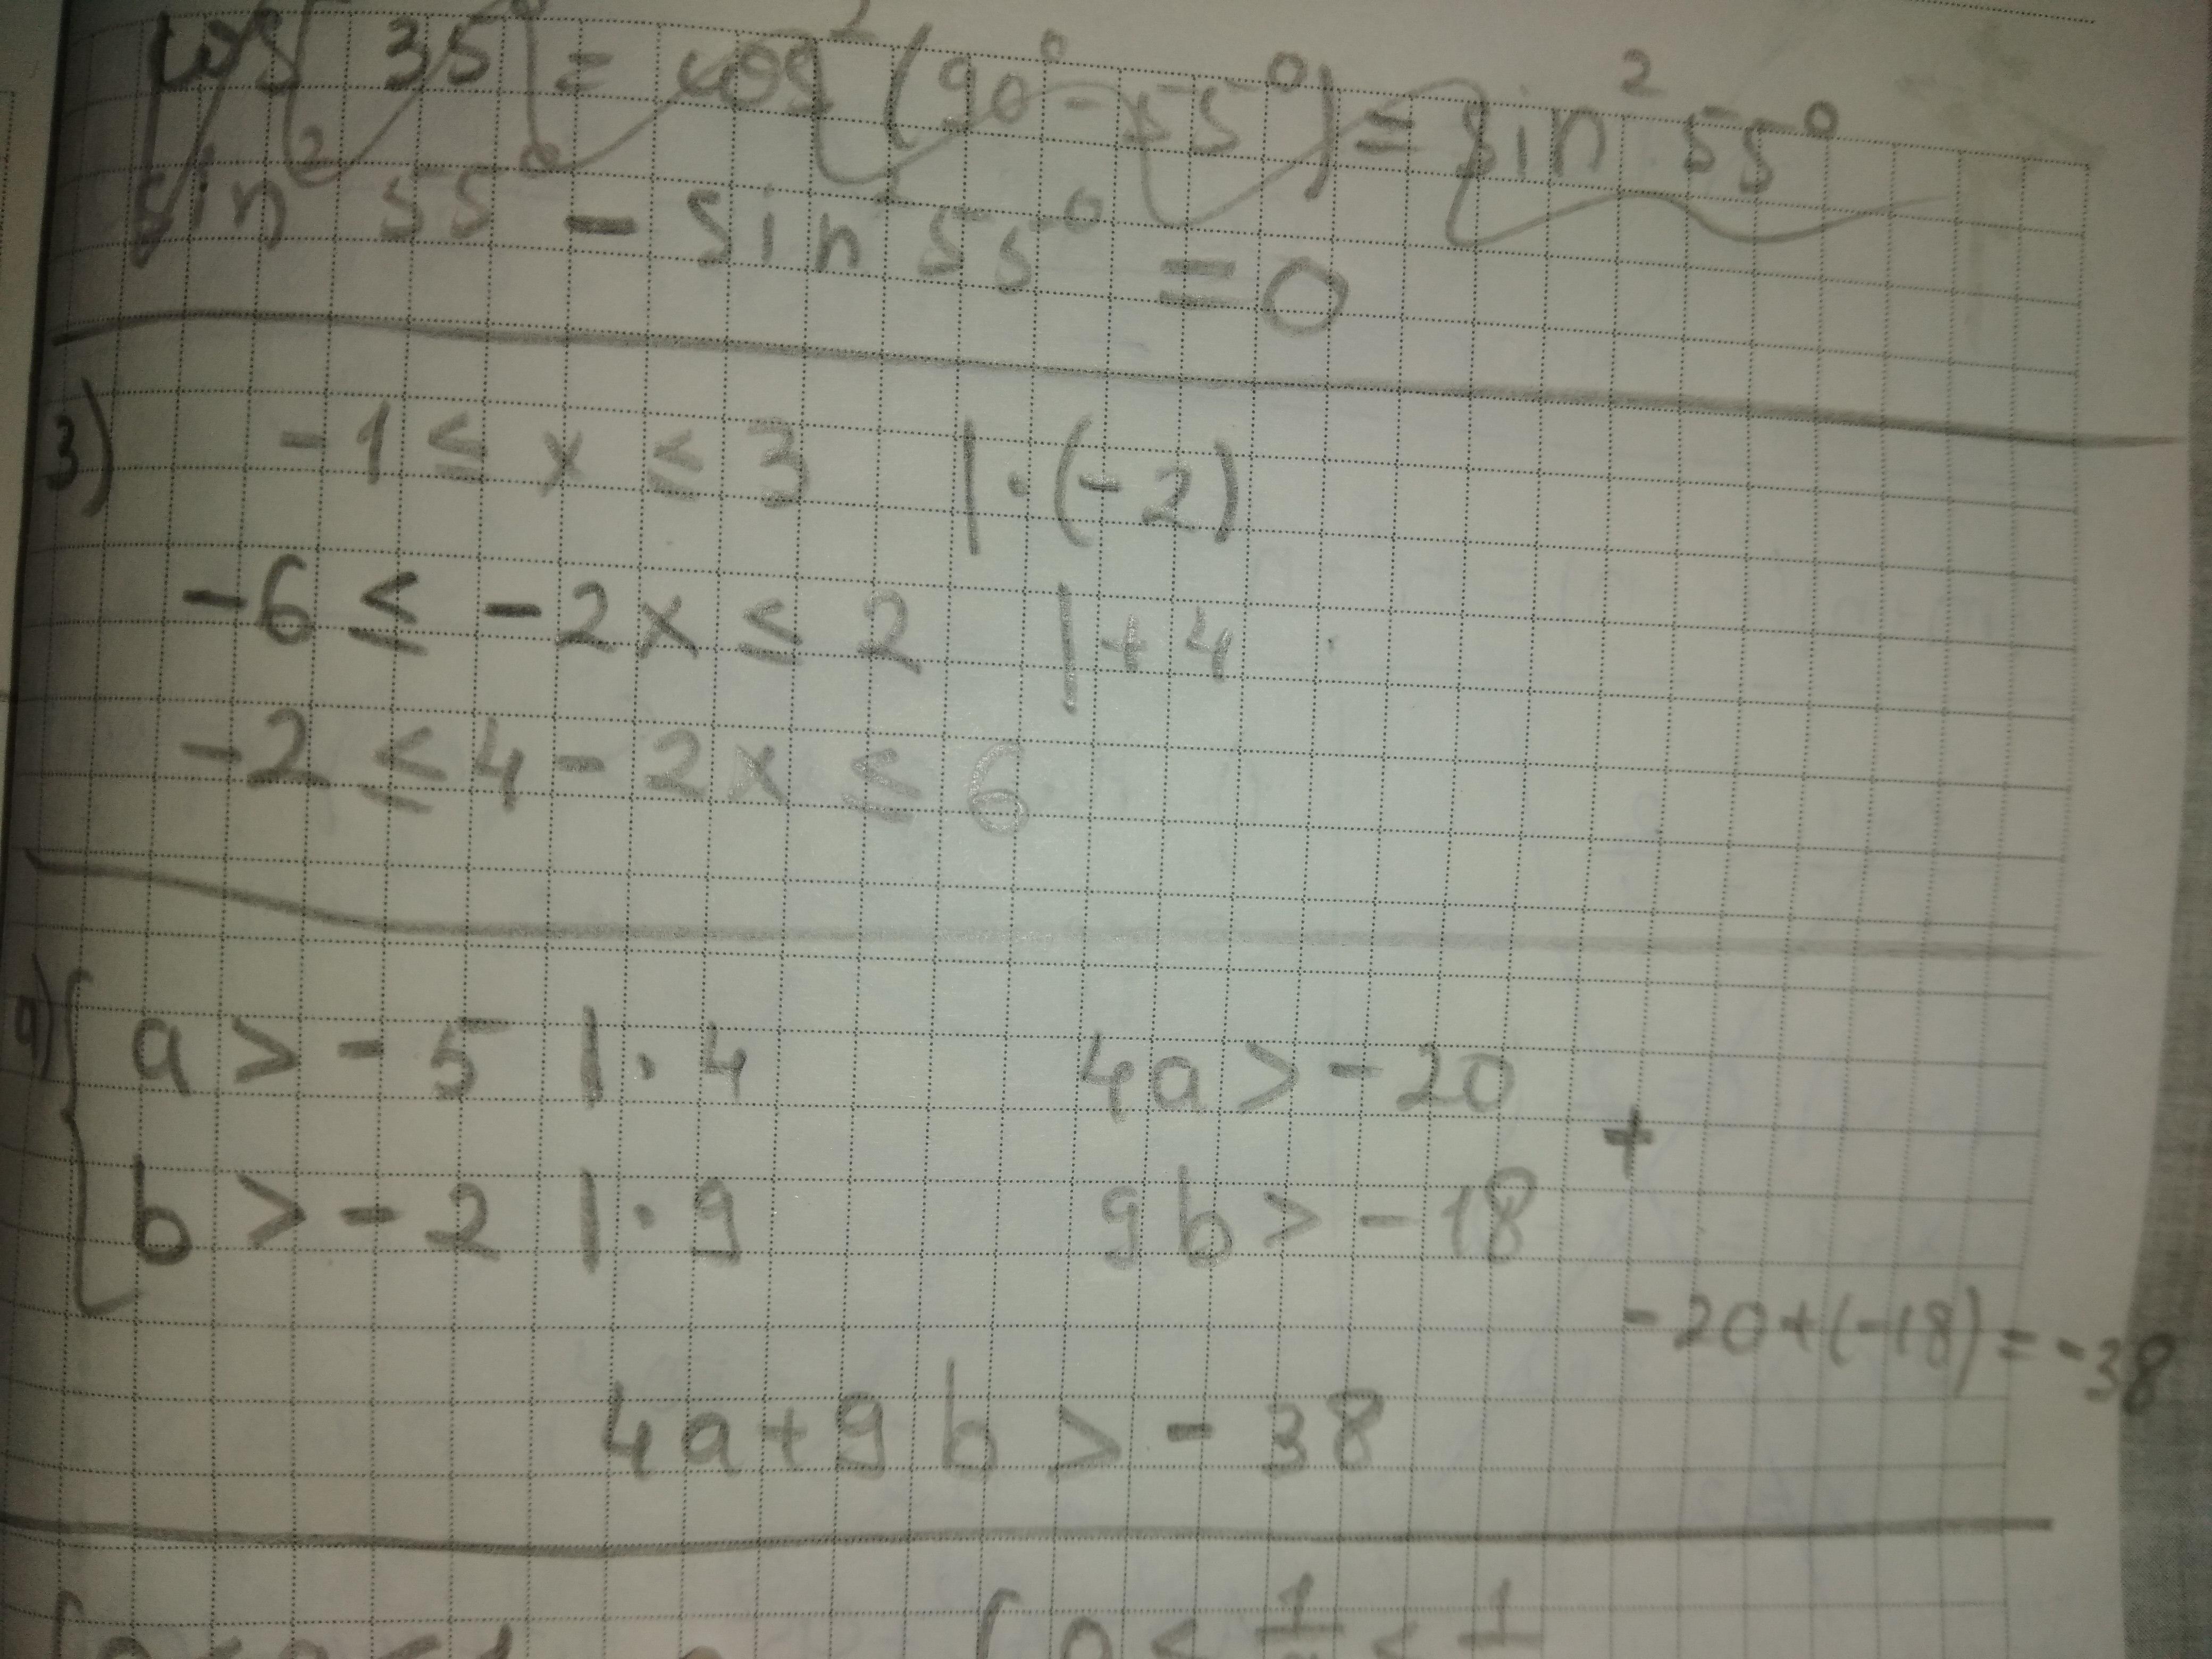 cos² 35° = cos² (90° - 55°) = sin² 55°
sin² 55° - sin² 55° = 0
3) -1 ≤ x ≤ 3 | · (-2)
-6 ≤ -2x ≤ 2 | + 4
-2 ≤ 4 - 2x ≤ 6
{ a > -5 | · 4 4a > -20
+
b > -2 | · 9 9b > -18
-20 + (-18) = -38
4a + 9b > -38